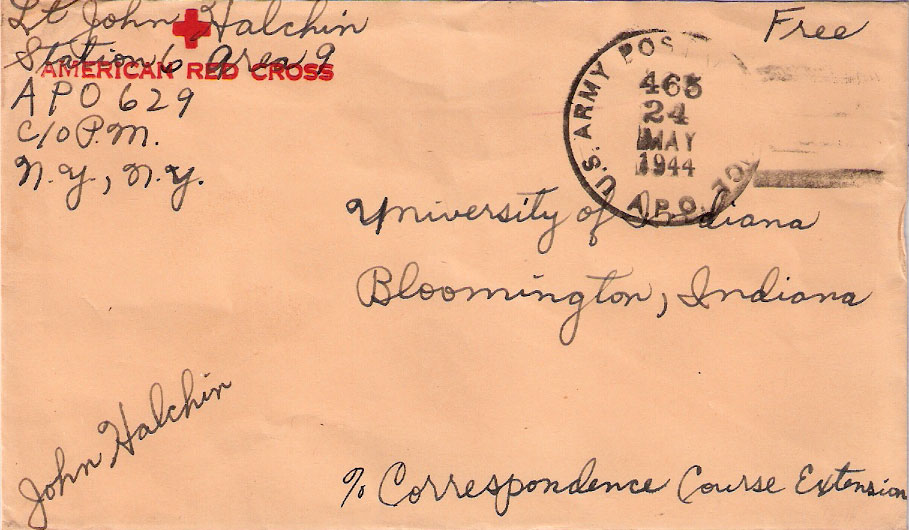 Lt John Halchin
Station 6 Area 9
AMERICAN RED CROSS
A P O 629
c/o P.M.
N.Y., N.Y.
Free
U.S. ARMY POSTAL
465
24
MAY
1944
A.P.O.
University of Indiana
Bloomington, Indiana
John Halchin
% Correspondence Course Extension